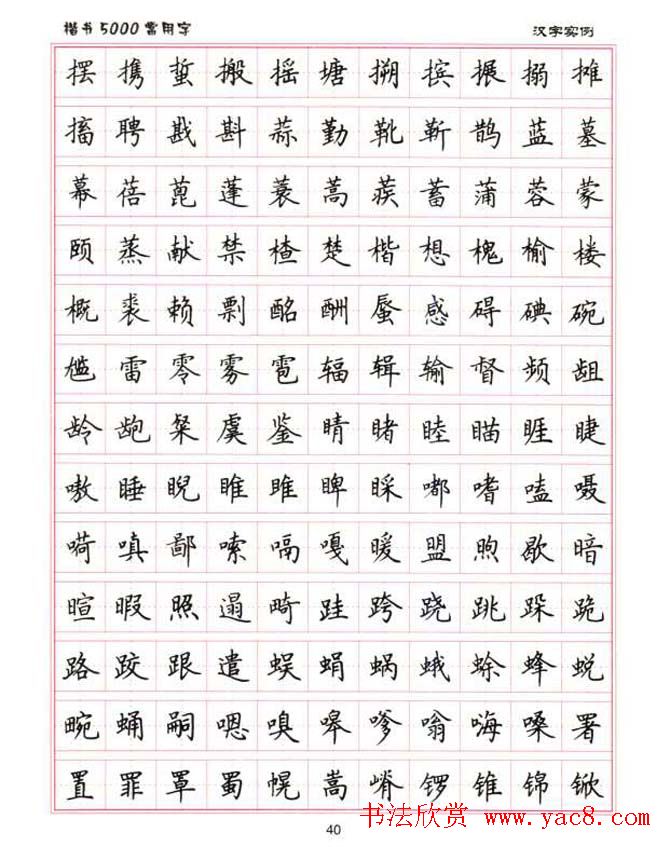 楷书5000常用字 汉字实例
摆携蜇搬摇塘搠摈搌搦摊
搐聘戡斟蒜勤靴靳鹊蓝墓
幕蓓蓖蓬蓑蒿蒺蓄蒲蓉蒙
颐蒸献禁楂楚楷想槐榆楼
概裘赖剽酩酬蜃感碍碘碗
尴雷零雾雹辐辑输督频龃
龄龅粲虞鉴睛睹睦瞄睚睫
嗷睡睨雎睢睥睬嘟嗜嗑嗫
嗬嗔鄙嗦嗝嘎暖盟煦歇暗
暄暇照遢畸跬跨跷跳跺跪
路跤跟遣蜈蜎蜗蛾蜍蜂蜕
畹蛹嗣嗯嗅嗥嗲嗡嗨嗓署
置罪罩蜀幌嵩嵴锣锥锦锨
40
书法欣赏 www.yac8.com